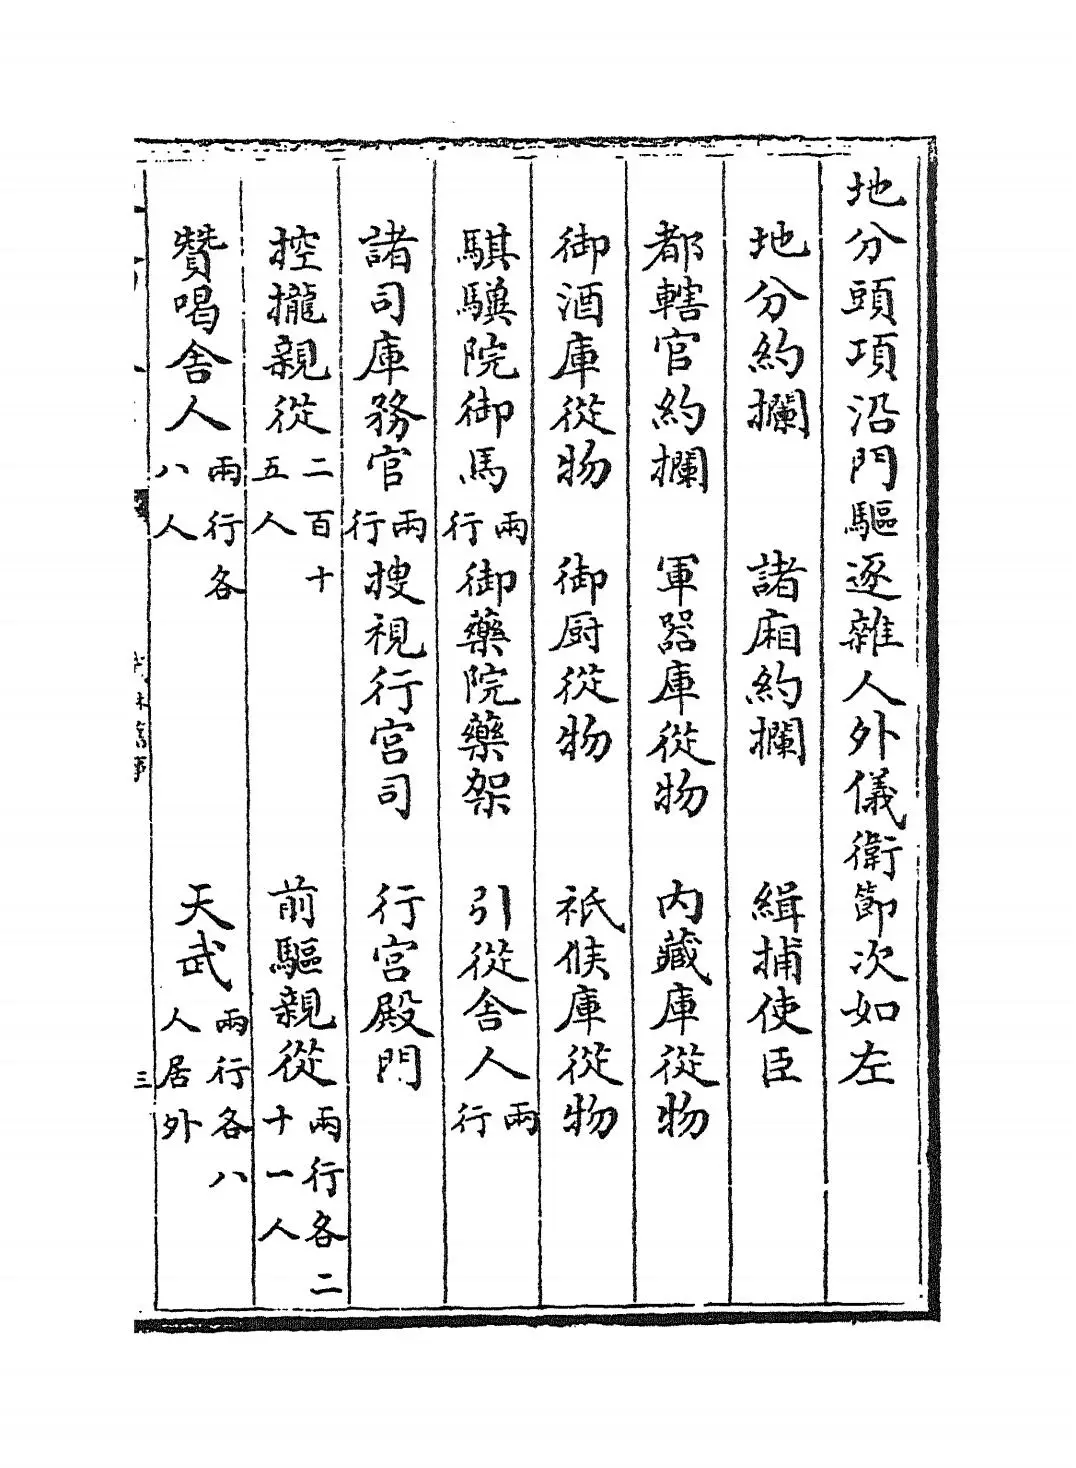 地分頭項沿門驅逐雜人外儀衛節次如左
地分約攔　諸廂約攔　緝捕使臣
都轄官約攔　軍器庫從物　内藏庫從物
御酒庫從物　御厨從物　祇候庫從物
騏驥院御馬兩行御藥院藥架　引從舍人兩行
諸司庫務官兩行搜視行宫司　行宫殿門
控攏親從二百十五人　前驅親從兩行各二十一人
贊喝舍人兩行各八人　天武兩行各八人居外
三